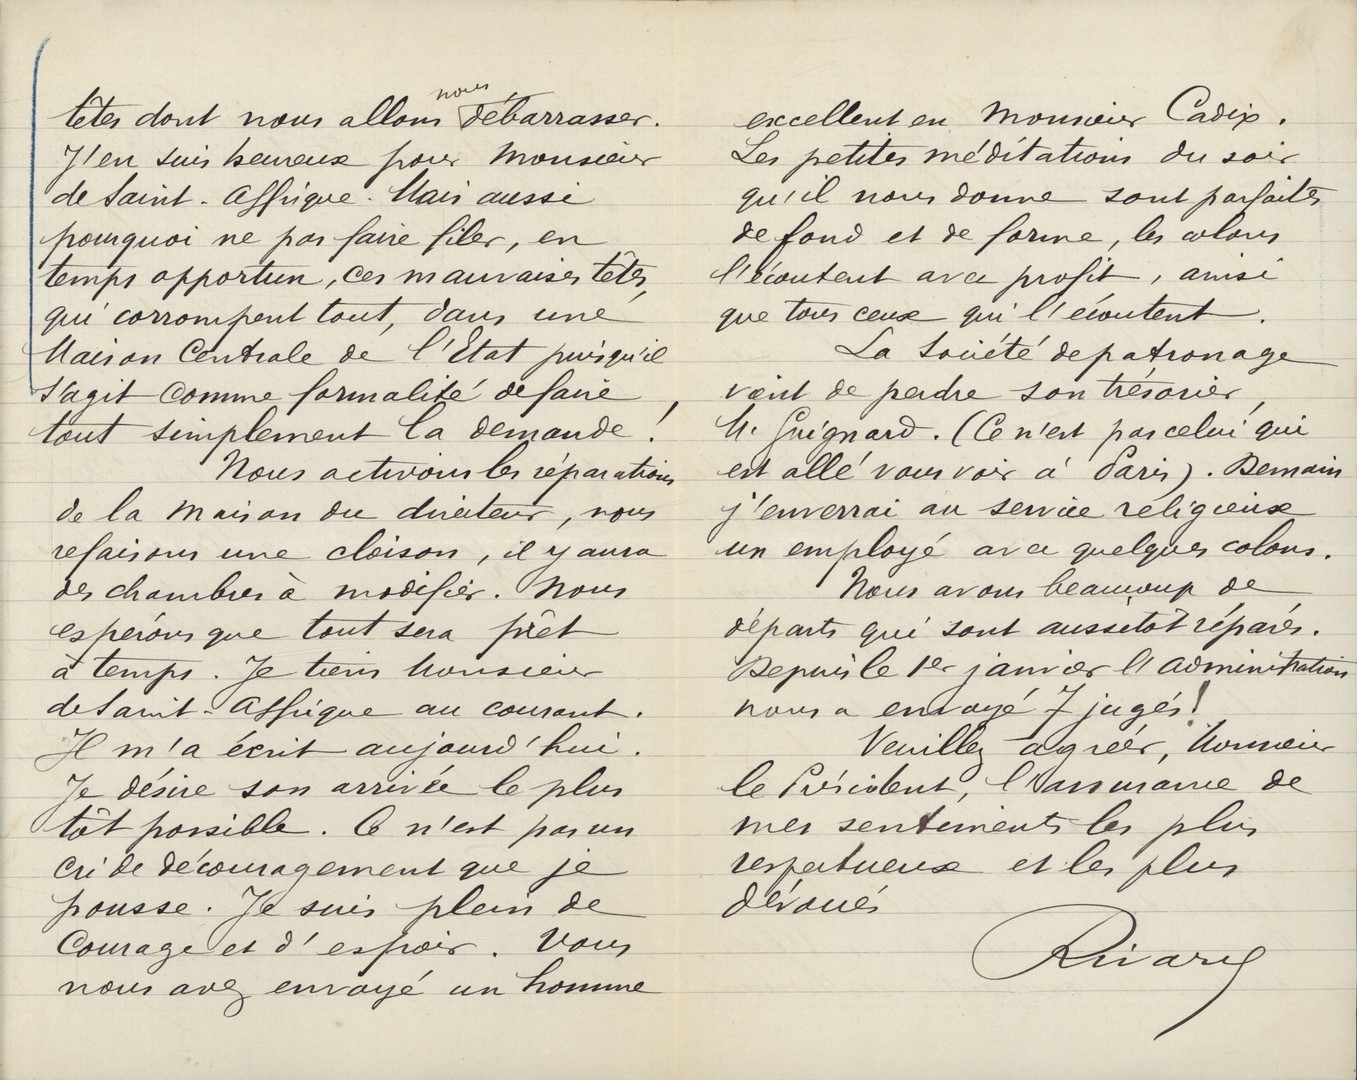 têtes dont nous allons nous débarrasser.
J'en suis heureux pour Monsieur
de Saint-Affrique. Mais aussi
pourquoi ne pas faire filer, en
temps opportun, ces mauvaises têtes,
qui corrompent tout, dans une
Maison Centrale de l'Etat puisqu'il
s'agit comme formalité de faire
tout simplement la demande !
Nous activons les réparations
de la Maison du directeur, nous
refaisons une cloison, il y aura
des chambres à modifier. Nous
espérons que tout sera prêt
à temps. Je tiens Monsieur
de Saint-Affrique au courant.
Il m'a écrit aujourd'hui.
Je désire son arrivée le plus
tôt possible. Ce n'est pas un
cri de découragement que je
pousse. Je suis plein de
courage et d'espoir. Vous
nous avez envoyé un homme
excellent en Monsieur Cadix.
Les petites méditations du soir
qu'il nous donne sont parfaites
de fond et de forme, les colons
l'écoutent avec profit, ainsi
que tous ceux qui l'écoutent.
La Société de patronage
vient de perdre son trésorier,
M. Guignard. (Ce n'est pas celui qui
est allé vous voir à Paris). Demain
j'enverrai au service religieux
un employé avec quelques colons.
Nous avons beaucoup de
départs qui sont aussitôt réparés.
Depuis le 1er janvier l'administration
nous a envoyé 7 jugés !
Veuillez agréer, Monsieur
le Président, l'assurance de
mes sentiments les plus
respectueux et les plus
dévoués